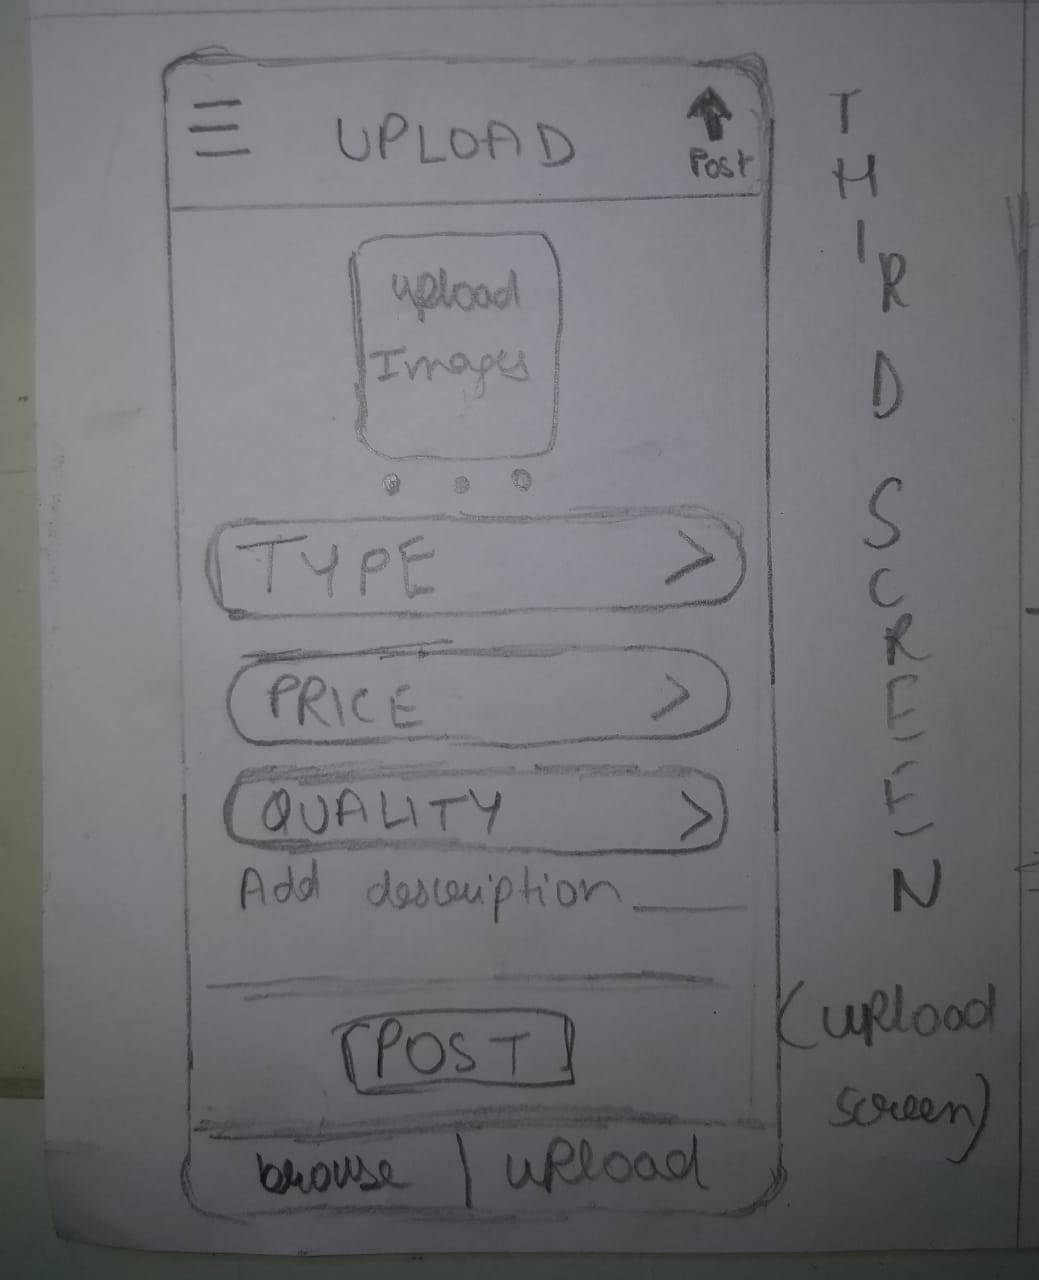 UPLOAD
Post
upload
Images
TYPE >
PRICE >
QUALITY >
Add description ____
POST
browse | upload
THIRD SCREEN
(upload
screen)